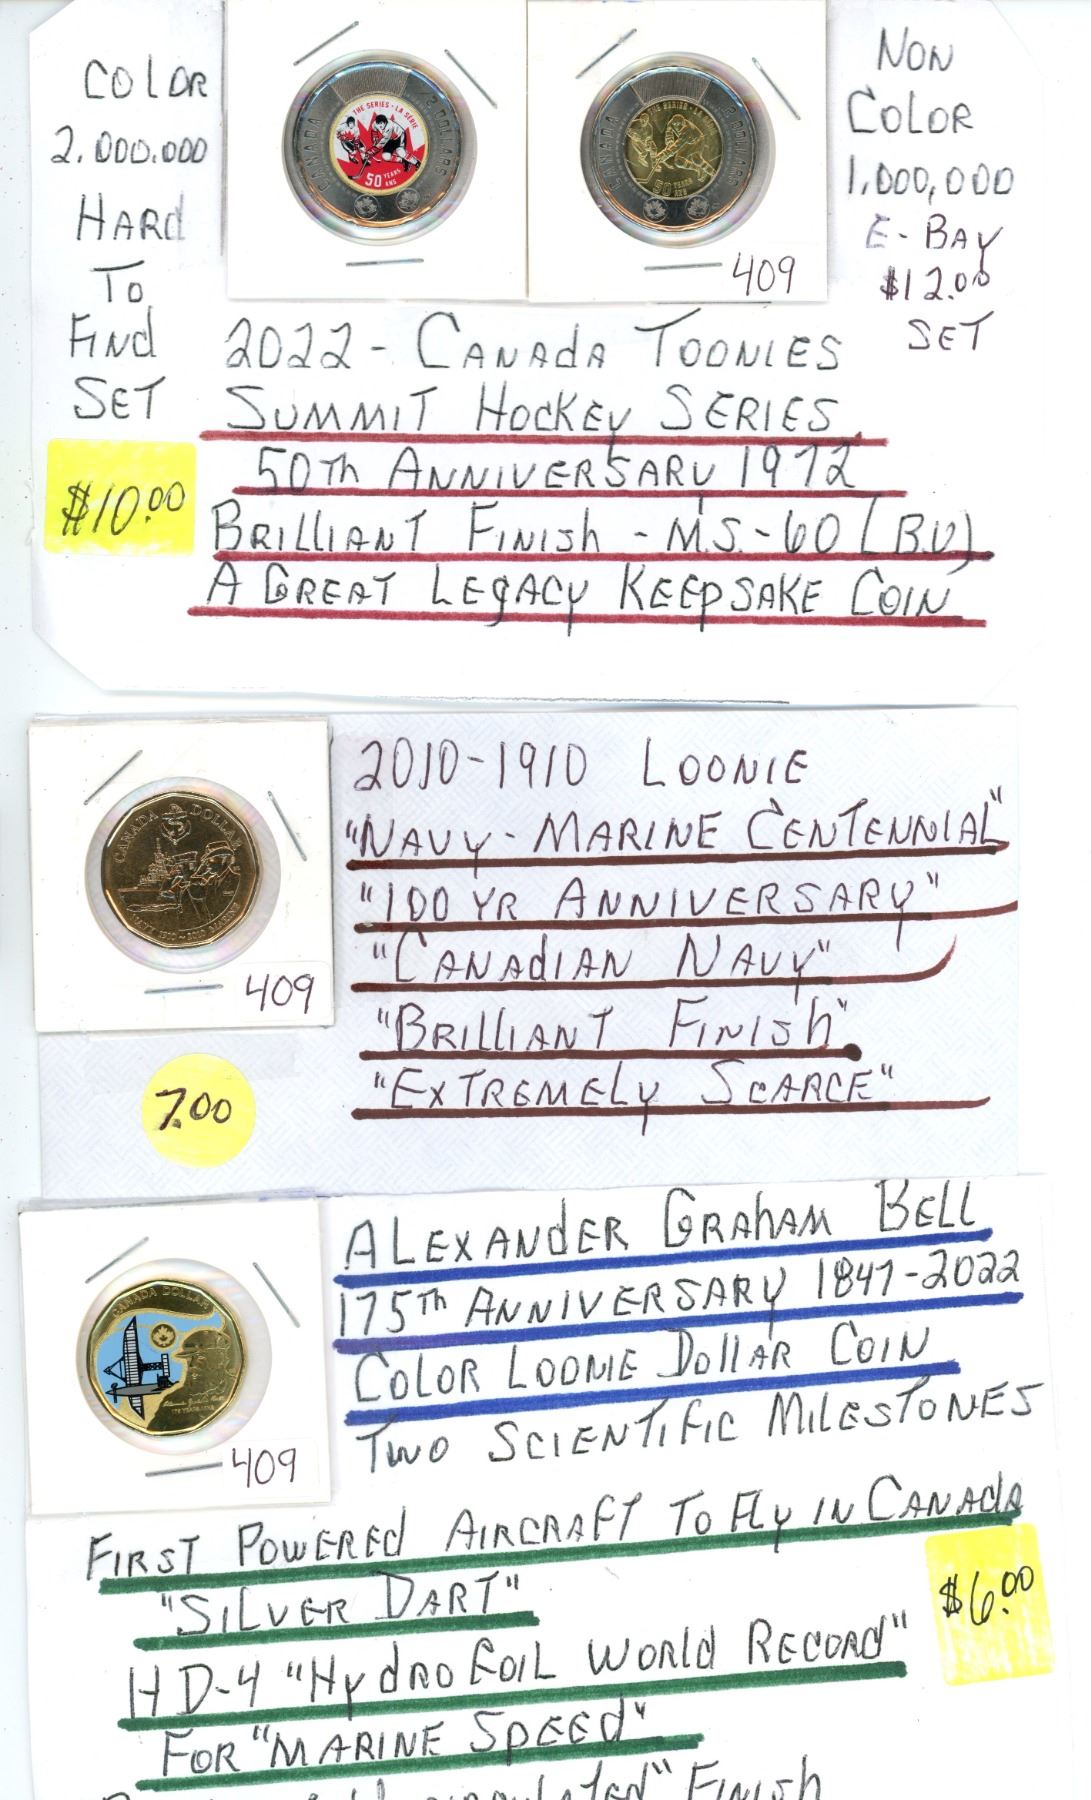 COLOR
2.000.000
HARD
TO
FINd
SET
$10.00
THE SERIES • LA SÉRIE
CANADA
2 DOLLARS
50 YEARS
ANS
THE SERIES • LA SÉRIE
CANADA
2 DOLLARS
50 YEARS
ANS
409
NON
COLOR
1,000,000
E-BAY
$12.00
SET
2022 - CANAdA TOONIES
SUMMIT HOCKEY SERIES
50Th ANNIVERSARY 1972
BRILLIANT FINISh - M.S.-60 (B.U)
A GREAT LEgACY KEEPSAKE COIN
CANADA DOLLAR
NAVY 1910-2010 MARINE
409
7.00
2010-1910 LOONIE
"NAVY-MARINE CENTENNIAL"
"100 YR ANNIVERSARY"
"CANAdIAN NAVY"
"BRILLIANT FINISh"
"EXTREMELY SCARCE"
CANADA DOLLAR
409
ALEXANdER GRAhAM BELL
175Th ANNIVERSARY 1847-2022
COLOR LOONIE DOllAR COIN
TWO SCIENTIFIC MILESTONES
FIRST POWEREd AIRCRAFT TO FLY IN CANAdA
"SILVER DART"
HD-4 "HYdRO FOIL WORLd RECORd"
FOR "MARINE SPEEd"
$6.00
FINISh